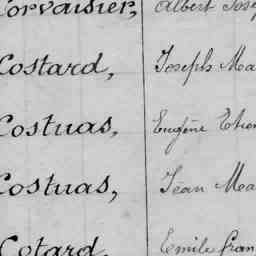 Corvaisier, Albert Jose
Costard, Joseph Ma
Costuas, Eugène Etien
Costuas, Jean Ma
Cotard, Emile Fran